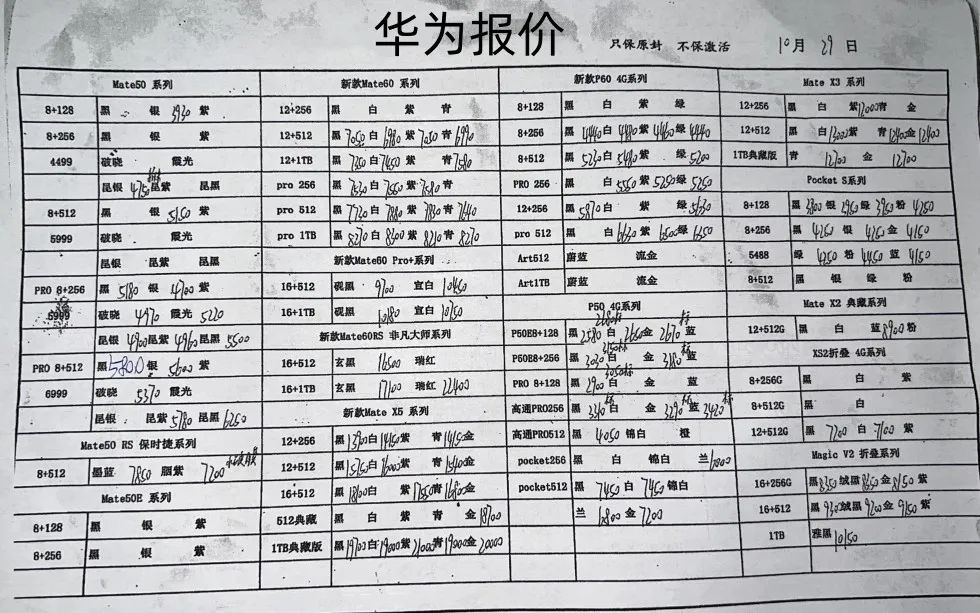 华为报价
只保原封 不保激活 10月 29日
Mate50 系列
8+128 黑 银 3930 紫
8+256 黑 银 紫
4499 破晓 霞光
昆银 4750 昆紫 昆黑
8+512 黑 银 5150 紫
5999 破晓 霞光
昆银 昆紫 昆黑
PRO 8+256 黑 5180 银 紫
5999 破晓 4970 霞光 5220
昆银 4900 昆紫 4960 昆黑 5500
PRO 8+512 黑 5800 银 5600 紫
6999 破晓 5370 霞光
昆银 昆紫 5780 昆黑 6250
Mate50 RS 保时捷系列
8+512 墨蓝 7850 胭紫 7200
Mate50E 系列
8+128 黑 银 紫
8+256 黑 银 紫
新款Mate60 系列
12+256 黑 白 紫 青
12+512 黑 7050 白 6980 紫 7050 青 6990
12+1TB 黑 7350 白 7450 紫 青 7580
pro 256 黑 7530 白 7550 紫 7580 青
pro 512 黑 7720 白 7880 紫 7830 青 7640
pro 1TB 黑 8270 白 8300 紫 8210 青 8270
新款Mate60 Pro+系列
16+512 砚黑 9700 宣白 10450
16+1TB 砚黑 10180 宣白 10750
新款Mate60RS 非凡大师系列
16+512 玄黑 16500 瑞红
16+1TB 玄黑 17100 瑞红 22400
新款Mate X5 系列
12+256 黑 13900 白 14150 紫 青 14150 金
12+512 黑 15150 白 16000 紫 青 15400 金
16+512 黑 18100 白 紫 17550 青 16800 金
512典藏 黑 白 紫 青 金 18700
1TB典藏版 黑 19700 白 19000 紫 21000 青 19000 金 20000
新款P60 4G系列
8+128 黑 白 紫 绿
8+256 黑 4440 白 4490 紫 4460 绿 4440
8+512 黑 5230 白 5480 紫 绿 5200
PRO 256 黑 白 5550 紫 5250 绿 5250
12+256 黑 5870 白 紫 绿 5630
pro 512 黑 白 6630 紫 6500 绿 6350
Art512 蔚蓝 流金
Art1TB 蔚蓝 流金
P50 4G系列
P50E8+128 黑 2580 白 2650 金 2670 蓝
P50E8+256 黑 3030 白 金 3180 蓝
PRO 8+128 黑 2900 白 金 蓝
高通PRO256 黑 3310 白 金 3290 蓝 3420
高通PRO512 黑 4050 锦白 橙
pocket256 黑 白 锦白 兰 6800
pocket512 黑 7450 白 7450 锦白
兰 6800 金 7200
Mate X3 系列
12+256 黑 白 紫 12000 青 金
12+512 黑 白 13000 紫 青 12400 金 12400
1TB典藏版 青 12700 金 12700
Pocket S系列
8+128 黑 3800 银 3950 绿 3950 粉 4250
8+256 黑 4250 银 4250 金 4150
5488 绿 4250 粉 4450 蓝 4150
8+512 黑 银 绿 粉
Mate X2 典藏系列
12+512G 黑 白 蓝 8900 粉
XS2折叠 4G系列
8+256G 黑 白 紫
8+512G 黑 白
12+512G 黑 7200 白 7100 紫
Magic V2 折叠系列
16+256G 黑 8350 绒黑 8650 金 8150 紫
16+512 黑 9300 绒黑 9200 金 9150 紫
1TB 雅黑 10150